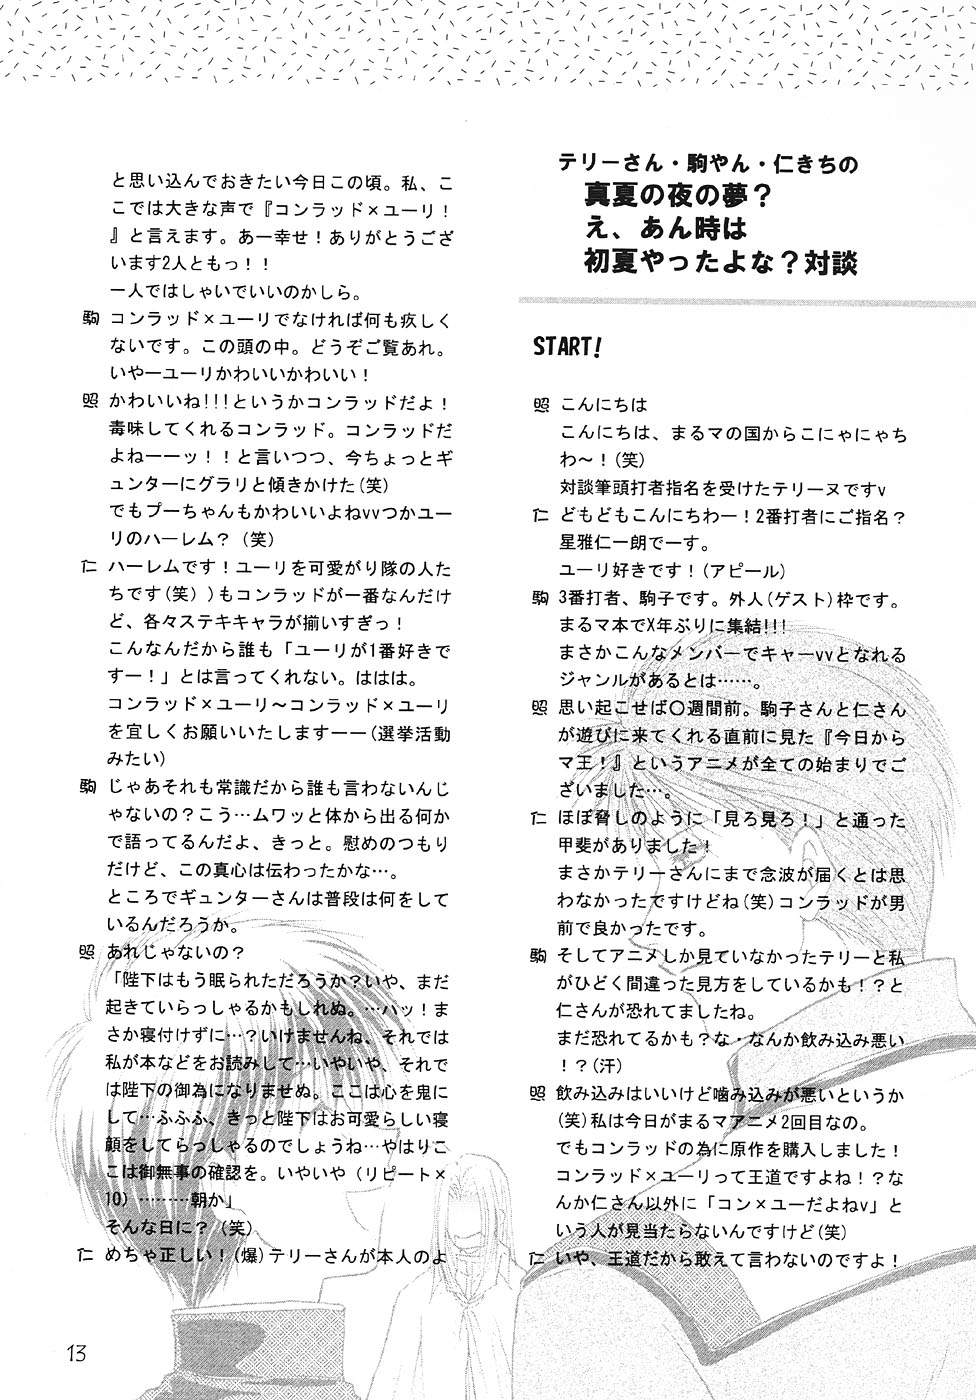 テリーさん・駒やん・仁きちの
真夏の夜の夢？
え、あん時は
初夏やったよな？対談
START!
照 こんにちは
こんにちは、まるマの国からこにゃにゃち
わ～！(笑)
対談筆頭打者指名を受けたテリーヌですv
仁 どもどもこんにちわー！2番打者にご指名？
星雅仁一朗でーす。
ユーリ好きです！(アピール)
駒 3番打者、駒子です。外人(ゲスト)枠です。
まるマ本でX年ぶりに集結!!!
まさかこんなメンバーでキャーvvとなれる
ジャンルがあるとは……。
照 思い起こせば〇週間前。駒子さんと仁さん
が遊びに来てくれる直前に見た『今日から
マ王！』というアニメが全ての始まりでご
ざいました…。
仁 ほぼ脅しのように「見ろ見ろ！」と通った
甲斐がありました！
まさかテリーさんにまで念波が届くとは思
わなかったですけどね(笑)コンラッドが男
前で良かったです。
駒 そしてアニメしか見ていなかったテリーと私
がひどく間違った見方をしているかも！？と
仁さんが恐れてましたね。
まだ恐れてるかも？な・なんか飲み込み悪い
！？(汗)
照 飲み込みはいいけど噛み込みが悪いというか
(笑)私は今日がまるマアニメ2回目なの。
でもコンラッドの為に原作を購入しました！
コンラッド×ユーリって王道ですよね！？な
んか仁さん以外に「コン×ユーだよねv」と
いう人が見当たらないんですけど(笑)
仁 いや、王道だから敢えて言わないのですよ！
と思い込んでおきたい今日この頃。私、こ
こでは大きな声で『コンラッド×ユーリ！
』と言えます。あー幸せ！ありがとうござ
います2人ともっ！！
一人ではしゃいでいいのかしら。
駒 コンラッド×ユーリでなければ何も疚しく
ないです。この頭の中。どうぞご覧あれ。
いやーユーリかわいいかわいい！
照 かわいいね!!!というかコンラッドだよ！
毒味してくれるコンラッド。コンラッドだ
よねーーッ！！と言いつつ、今ちょっとギ
ュンターにグラリと傾きかけた(笑)
でもプーちゃんもかわいいよねvvつかユー
リのハーレム？（笑）
仁 ハーレムです！ユーリを可愛がり隊の人た
ちです(笑)）もコンラッドが一番なんだけ
ど、各々ステキキャラが揃いすぎっ！
こんなんだから誰も「ユーリが1番好きで
すー！」とは言ってくれない。ははは。
コンラッド×ユーリ～コンラッド×ユーリ
を宜しくお願いいたしますーー(選挙活動
みたい)
駒 じゃあそれも常識だから誰も言わないんじ
ゃないの？こう…ムワッと体から出る何か
で語ってるんだよ、きっと。慰めのつもり
だけど、この真心は伝わったかな…。
ところでギュンターさんは普段は何をして
いるんだろうか。
照 あれじゃないの？
「陛下はもう眠られただろうか？いや、まだ
起きていらっしゃるかもしれぬ。…ハッ！ま
さか寝付けずに…？いけませんね、それでは
私が本などをお読みして…いやいや、それで
は陛下の御為になりませぬ。ここは心を鬼に
して…ふふふ、きっと陛下はお可愛らしい寝
顔をしてらっしゃるのでしょうね…やはりこ
こは御無事の確認を。いやいや（リピート×
10）………朝か」
そんな日に？（笑）
仁 めちゃ正しい！(爆)テリーさんが本人のよ
13